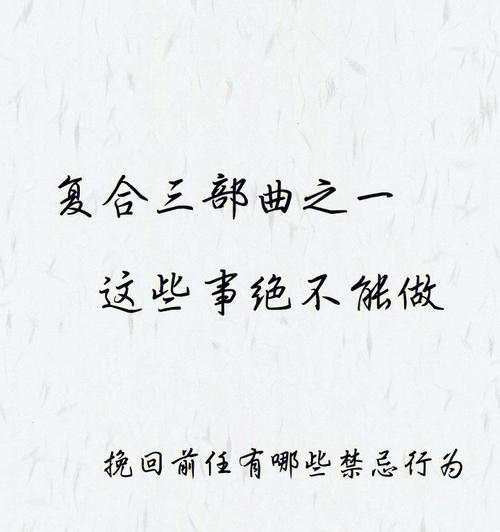 复合三部曲之一
这些事绝不能做
挽回前任有哪些禁忌行为